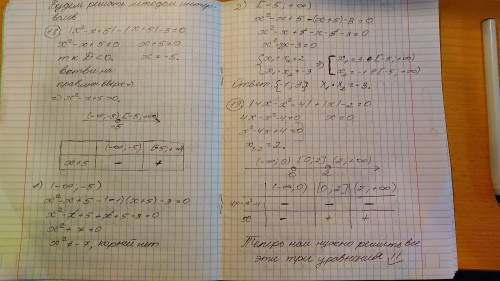 Будем решать методом интер-
валов
|x²-x+5|-|x+5|-3=0
x²-x+5=0 x+5=0
т.к D<0, x=-5.
ветви на-
правит вверх
⇒ x²-x+5>0,
(-∞,-5) [-5,+∞)
-5
(-∞,-5) [-5,+∞)
x+5 - +
1) (-∞,-5)
x²-x+5-(-1)(x+5)-3=0
x²-x+5+x+5-3=0
x²+7=0
x²=-7, корней нет
2) [-5,+∞)
x²-x+5-(x+5)-3=0
x²-x+5-x-5-3=0
x²-2x-3=0
x₁+x₂=2
x₁·x₂=-3
⇒ x₁=3∈[-5,+∞)
x₂=-1∈[-5,+∞)
Ответ: {-1,3} x₁·x₂=-3.
|4x-x²-4|+|x|-2=0
4x-x²-4=0 x=0
x²-4x+4=0
x₁,₂=2.
(-∞,0) [0,2] (2,+∞)
0 2
(-∞,0) [0,2] (2,+∞)
4x-x²-4 - - -
x - + +
Теперь нам нужно решить все
эти три уравнения!!